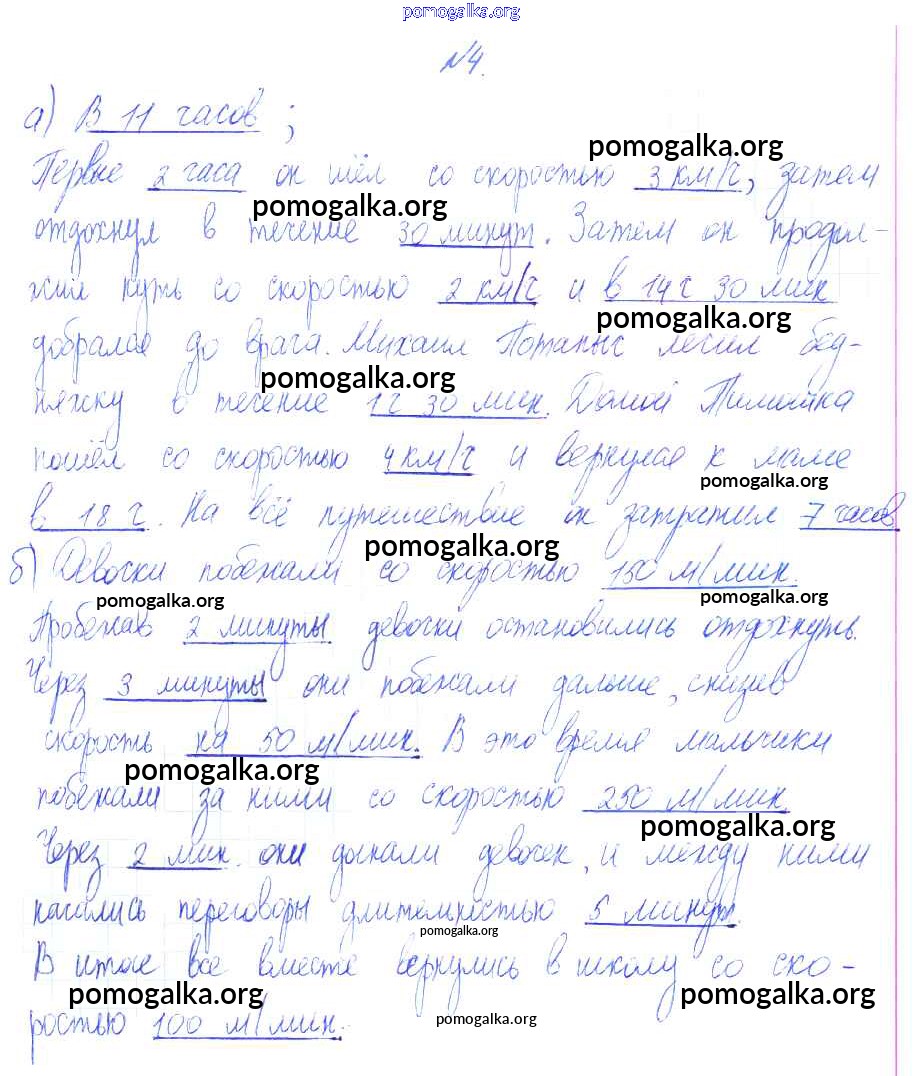 pomogalka.org
№4.
а) В 11 часов ;
pomogalka.org
Первые 2 часа он шёл со скоростью 3 км/ч, затем
pomogalka.org
отдохнул в течение 30 минут. Затем он продол-
жил путь со скоростью 2 км/ч и в 14 ч 30 мин
pomogalka.org
добрался до врача. Михаил Потапыч лечил бед-
pomogalka.org
няжку в течение 1 ч 30 мин. Домой Тимошка
пошёл со скоростью 4 км/ч и вернулся к маме
pomogalka.org
в 18 ч. На всё путешествие он затратил 7 часов
pomogalka.org
б) Девочки побежали со скоростью 150 м/мин.
pomogalka.org pomogalka.org
Пробежав 2 минуты девочки остановились отдохнуть.
Через 3 минуты они побежали дальше, снизив
скорость на 50 м/мин. В это время мальчики
pomogalka.org
побежали за ними со скоростью 250 м/мин.
pomogalka.org
Через 2 мин. они догнали девочек, и между ними
начались переговоры длительностью 5 минут.
pomogalka.org
В итоге все вместе вернулись в школу со ско-
pomogalka.org pomogalka.org
ростью 100 м/мин.
pomogalka.org